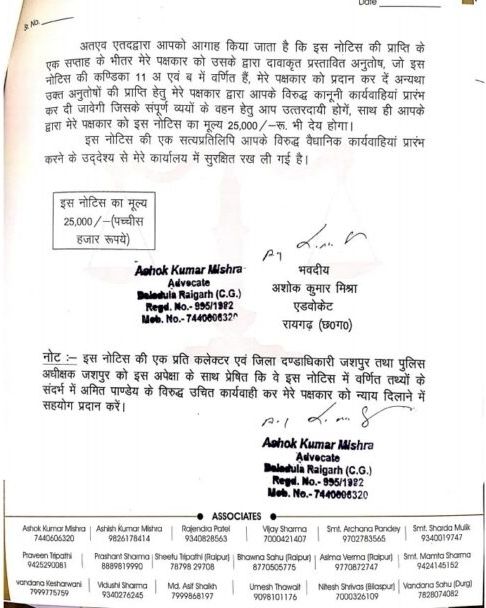 Sr. No.
Date
अतएव एतदद्वारा आपको आगाह किया जाता है कि इस नोटिस की प्राप्ति के
एक सप्ताह के भीतर मेरे पक्षकार को उसके द्वारा दावाकृत प्रस्तावित अनुतोष, जो इस
नोटिस की कण्डिका 11 अ एवं ब में वर्णित हैं, मेरे पक्षकार को प्रदान कर दें अन्यथा
उक्त अनुतोषों की प्राप्ति हेतु मेरे पक्षकार द्वारा आपके विरुद्ध कानूनी कार्यवाहियां प्रारंभ
कर दी जावेगी जिसके संपूर्ण व्ययों के वहन हेतु आप उत्तरदायी होगें, साथ ही आपके
द्वारा मेरे पक्षकार को इस नोटिस का मूल्य 25,000/–रू. भी देय होगा।
इस नोटिस की एक सत्यप्रतिलिपि आपके विरुद्ध वैधानिक कार्यवाहियां प्रारंभ
करने के उद्देश्य से मेरे कार्यालय में सुरक्षित रख ली गई है।
इस नोटिस का मूल्य
25,000/–(पच्चीस
हजार रूपये)
Ashok Kumar Mishra
Advocate
Baladula Raigarh (C.G.)
Regd. No.- 995/1992
Mob. No.- 7440606320
भवदीय
अशोक कुमार मिश्रा
एडवोकेट
रायगढ़ (छ०ग०)
नोट :– इस नोटिस की एक प्रति कलेक्टर एवं जिला दण्डाधिकारी जशपुर तथा पुलिस
अधीक्षक जशपुर को इस अपेक्षा के साथ प्रेषित कि वे इस नोटिस में वर्णित तथ्यों के
संदर्भ में अमित पाण्डेय के विरुद्ध उचित कार्यवाही कर मेरे पक्षकार को न्याय दिलाने में
सहयोग प्रदान करें।
Ashok Kumar Mishra
Advocate
Baladula Raigarh (C.G.)
Regd. No.- 995/1992
Mob. No.- 7440606320
ASSOCIATES
Ashok Kumar Mishra | Ashish Kumar Mishra | Rajendra Patel | Vijay Sharma | Smt. Archana Pandey | Smt. Sharda Mulik
7440606320 | 9826178414 | 9340828563 | 7000421407 | 9702783565 | 9340019747
Praveen Tripathi | Prashant Sharma | Sheetu Tripathi (Raipur) | Bhawna Sahu (Raipur) | Asima Verma (Raipur) | Smt. Mamta Sharma
9425290081 | 8889819990 | 78798 29708 | 8770505775 | 9770872747 | 9424145152
vandana Kesharwani | Vidushi Sharma | Md. Asif Shaikh | Umesh Thawait | Nitesh Shrivas (Bilaspur) | Vandana Sahu (Durg)
7999775759 | 9340276245 | 7999868197 | 9098101176 | 7000326109 | 7828074082